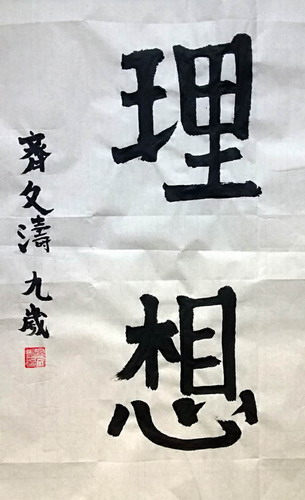 理想
齊文濤 九歲